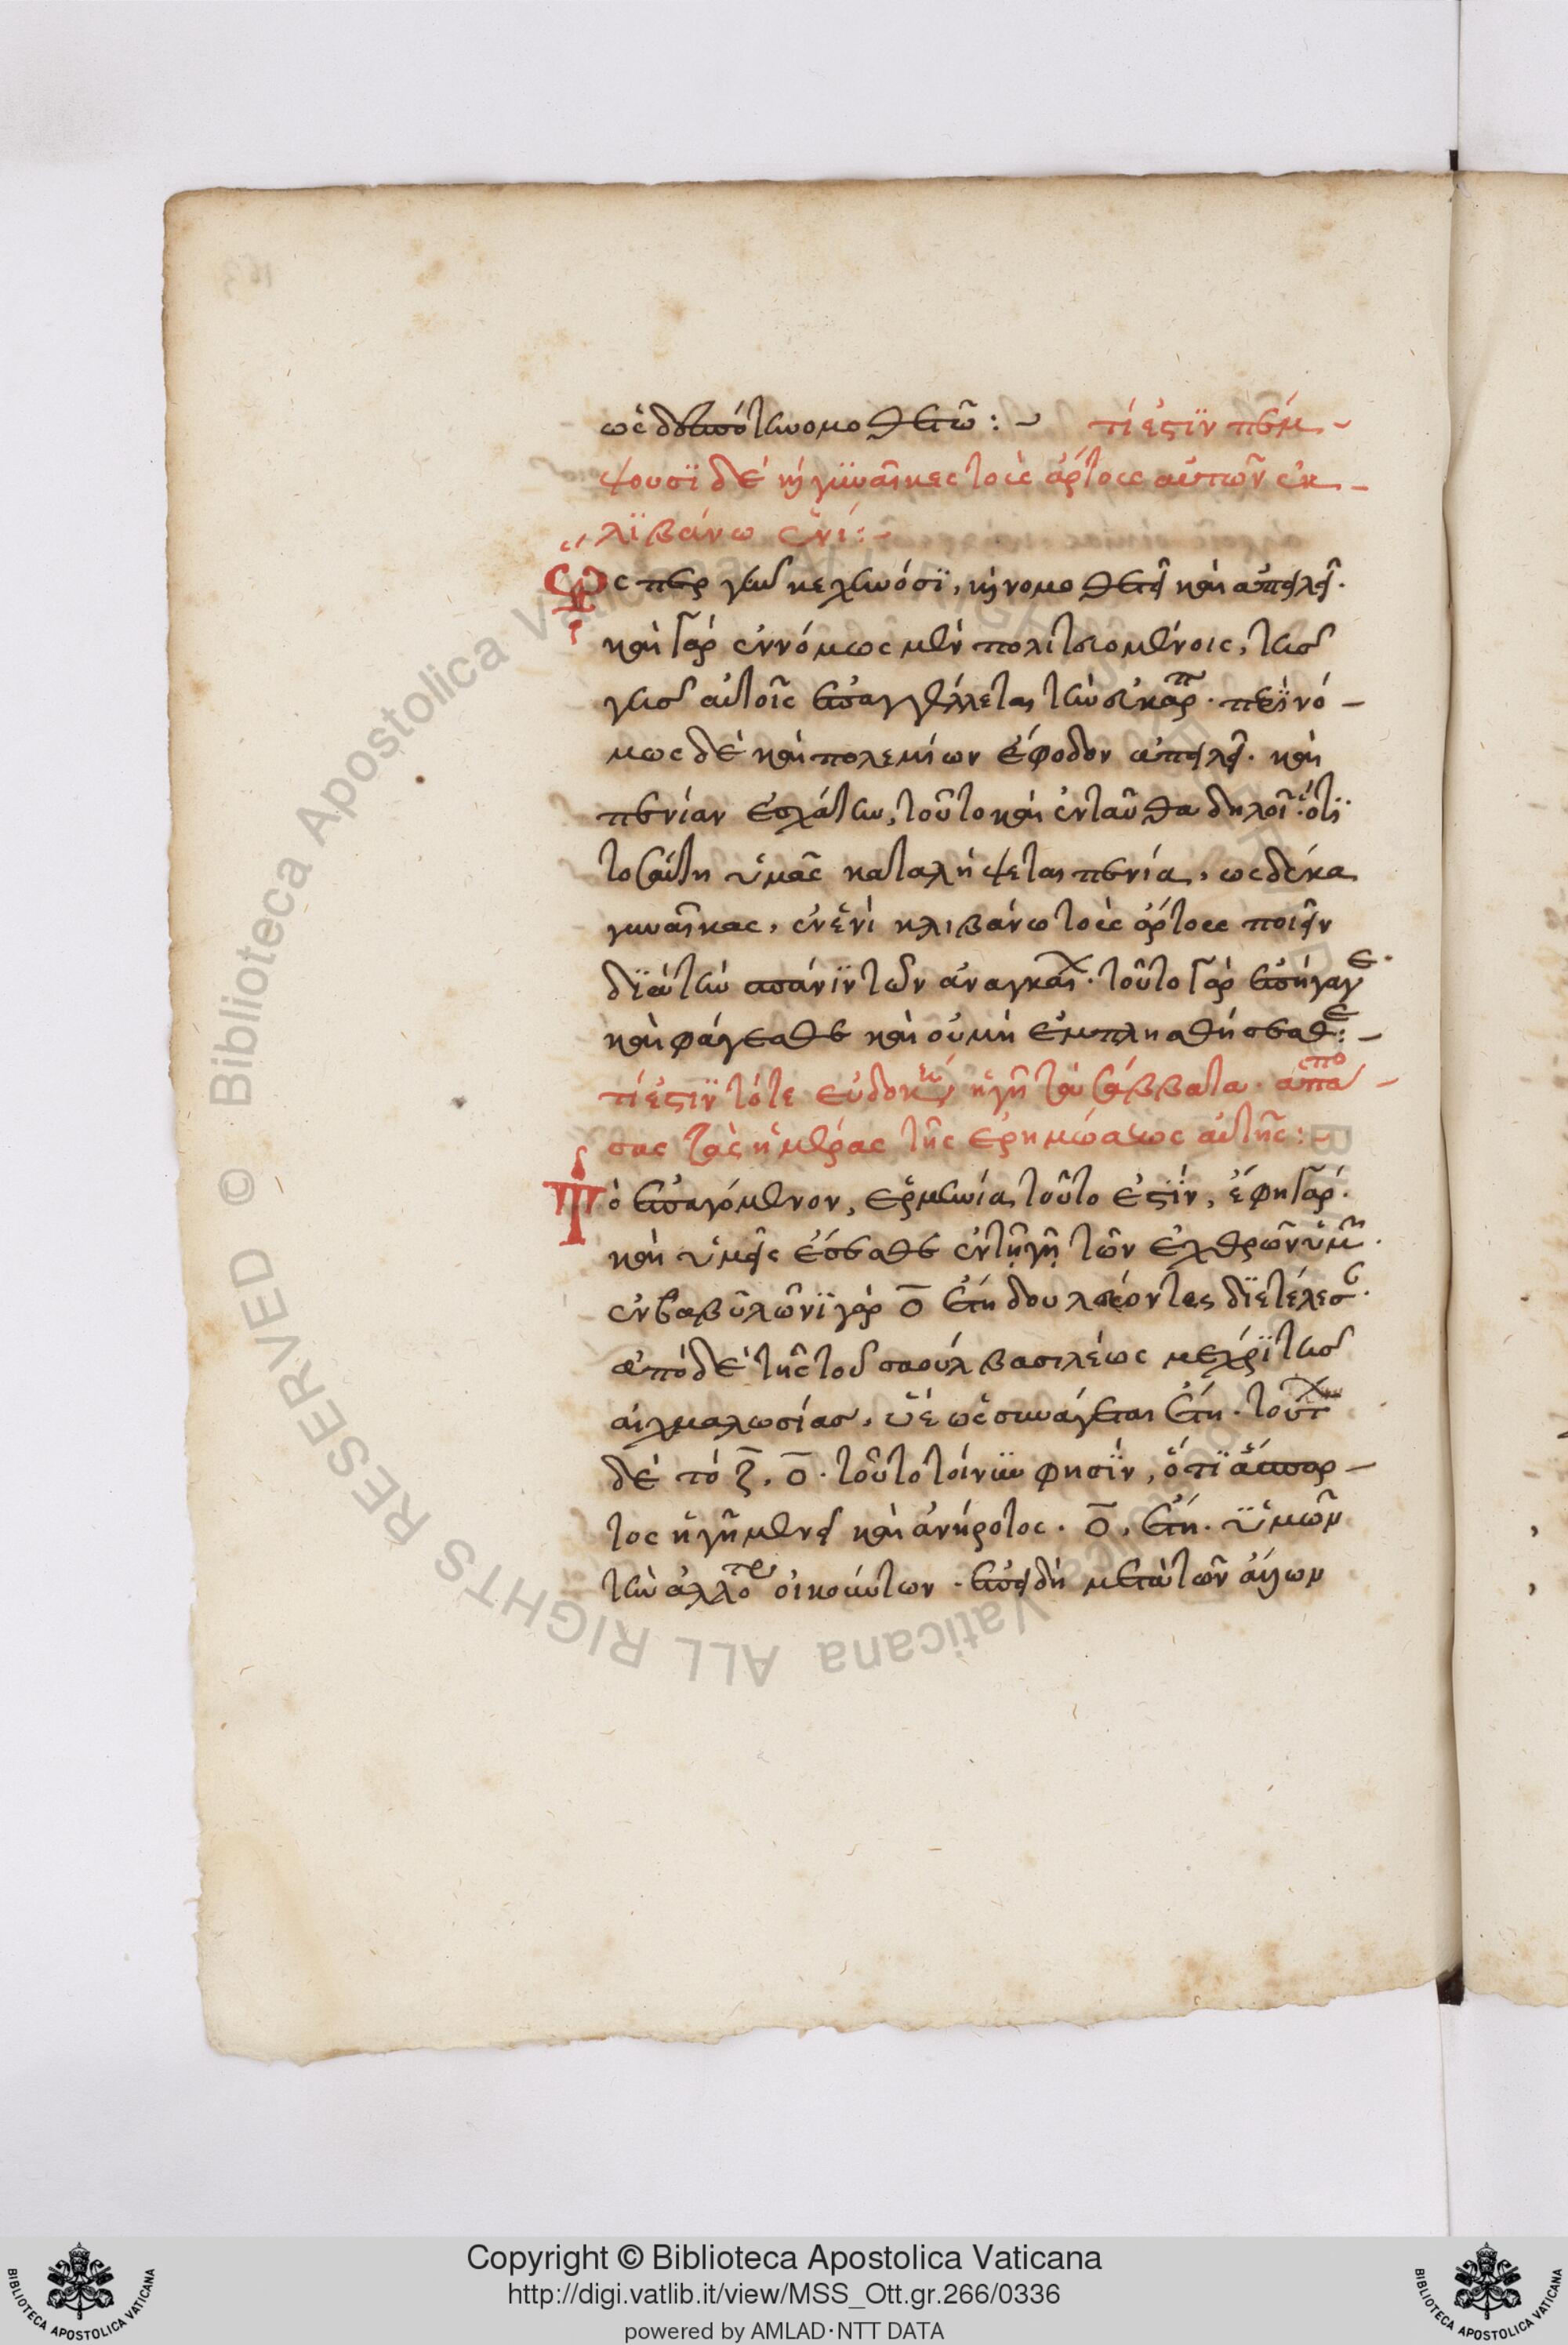 ὡς δεσπότην ὁμοθετῶ :~ τί ἐστϊν πέμ-
ψουσϊ δέκα γϋναῖκες τοὺς ἄρτους αὐτῶν ἐκ-
λϊβάνω ἑνί :~
Ὥσπερ γὰρ κεχηνόσϊ, κ νομοθετεῖ καὶ ἀπειλεῖ.
καὶ γὰρ ἐννόμως μὲν πολιτευομένοις, τῆς
γῆς αὐτοῖς ἐπαγγέλλεται τὴν εὐκαρπ. παρϊνό-
μως δὲ καὶ πολεμίων ἔφοδον ἀπειλεῖ. καὶ
πενίαν ἐσχάτην, τοῦτο καὶ ἐνταῦθα δηλοῖ· ὅτϊ
τοσαύτη ὑμᾶς καταλήψεται πενία, ὡς δέκα
γυναῖκας, ἐν ἑνὶ κλιβάνω τοὺς ἄρτους ποιεῖν
διὰ τὴν σπάνϊν τῶν ἀναγκαί. τοῦτο γὰρ ἐπήγαγε.
καὶ φάγεσθε καὶ οὐ μὴ ἐμπλησθήσεσθε :~
τί ἐστϊν τότε εὐδοκήσει ἡ γῆ τὰ σάββατα. ἁπά-
σας τὰς ἡμέρας τῆς ἐρημώσεως αὐτῆς :~
Τὸ ἐπαγόμενον, ἑρμηνεία τοῦτο ἐστϊν, ἔφη γάρ.
καὶ ὑμεῖς ἔσεσθε ἐν τῇ γῇ τῶν ἐχθρῶν ὑμῶν.
ἐν βαβϋλῶνϊ γὰρ ο̅ ἔτη δουλεύοντες διετέλεσ.
ἀπὸ δὲ τῆς τοῦ σαοὺλ βασιλείας μέχρϊ τῆς
αἰχμαλωσίας, υ̅ε̅ ὡς συνάγεται ἔτη. τούτ
δὲ τὸ ζ̅, ο̅. τοῦτο τοίνϋν φησϊν, ὅτϊ ἄσπαρ-
τος ἡ γῆ μένει καὶ ἀνήροτος. ο̅, ἔτη. ὑμῶν
τὴν ἀλλοτρ οἰκούντων. ἐπειδὴ μετὰ τῶν ἄλλων